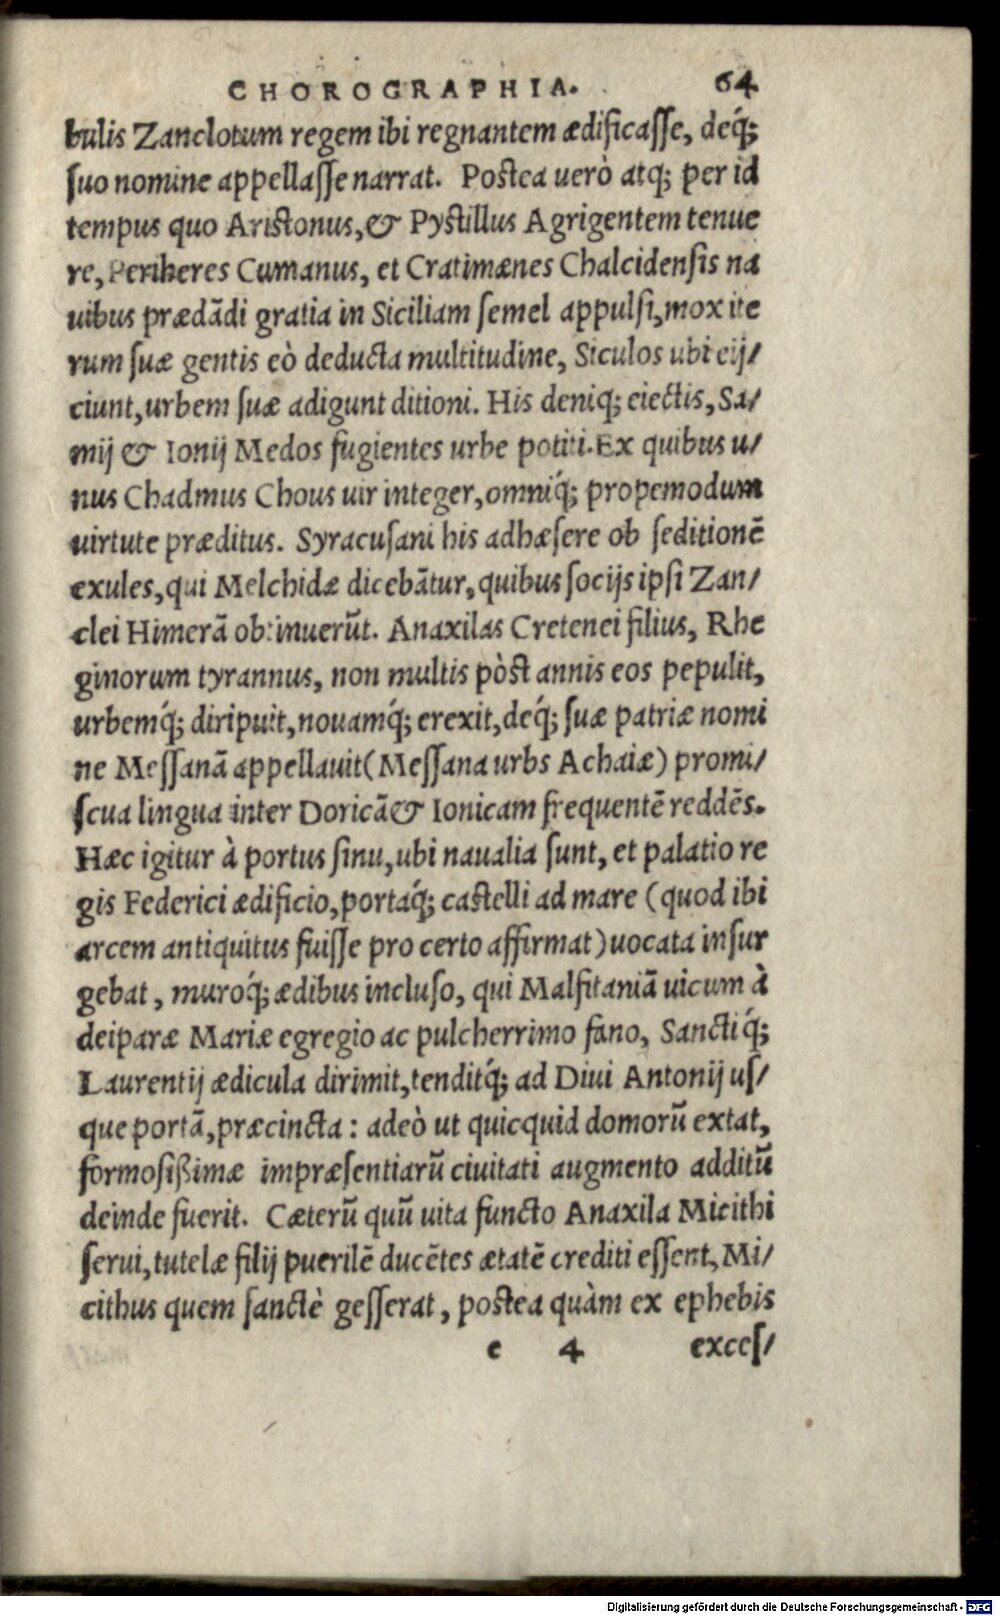 CHOROGRAPHIA. 64
bulis Zanclotum regem ibi regnantem ædificaſſe, deq́;
ſuo nomine appellaſſe narrat. Postea uerò atq; per id
tempus quo Aristonus, & Pystillus Agrigentem tenue
re, Periheres Cumanus, et Cratimænes Chalcidenſis na
uibus prædãdi gratia in Siciliam ſemel appulſi, mox ite
rum ſuæ gentis eò deducta multitudine, Siculos ubi eij/
ciunt, urbem ſuæ adigunt ditioni. His deniq; eiectis, Sa/
mij & Ionij Medos fugientes urbe potiti. Ex quibus u/
nus Chadmus Chous uir integer, omniq́; propemodum
uirtute præditus. Syracuſani his adhæſere ob ſeditionẽ
exules, qui Melchidæ dicebãtur, quibus ſocijs ipſi Zan/
clei Himerã obtinuerũt. Anaxilas Cretenei filius, Rhe
ginorum tyrannus, non multis pòst annis eos pepulit,
urbemq́; diripuit, nouamq́; erexit, deq́; ſuæ patriæ nomi
ne Meſſanã appellauit (Meſſana urbs Achaiæ) promi/
ſcua lingua inter Doricã & Ionicam frequentẽ reddẽs.
Hæc igitur à portus ſinu, ubi naualia ſunt, et palatio re
gis Federici ædificio, portaq́; castelli ad mare (quod ibi
arcem antiquitus fuiſſe pro certo affirmat) uocata inſur
gebat, muroq́; ædibus incluſo, qui Malfitaniã uicum à
deiparæ Mariæ egregio ac pulcherrimo fano, Sanctiq́;
Laurentij ædicula dirimit, tenditq́; ad Diui Antonij uſ/
que portã, præcincta: adeò ut quicquid domorũ extat,
formoſißimæ impræſentiarũ ciuitati augmento additũ
deinde fuerit. Cæterũ quũ uita functo Anaxila Micithi
ſerui, tutelæ filij puerilẽ ducẽtes ætatẽ crediti eſſent, Mi/
cithus quem ſanctè geſſerat, postea quàm ex ephebis
e 4 exceſ/
Digitalisierung gefördert durch die Deutsche Forschungsgemeinschaft - DFG